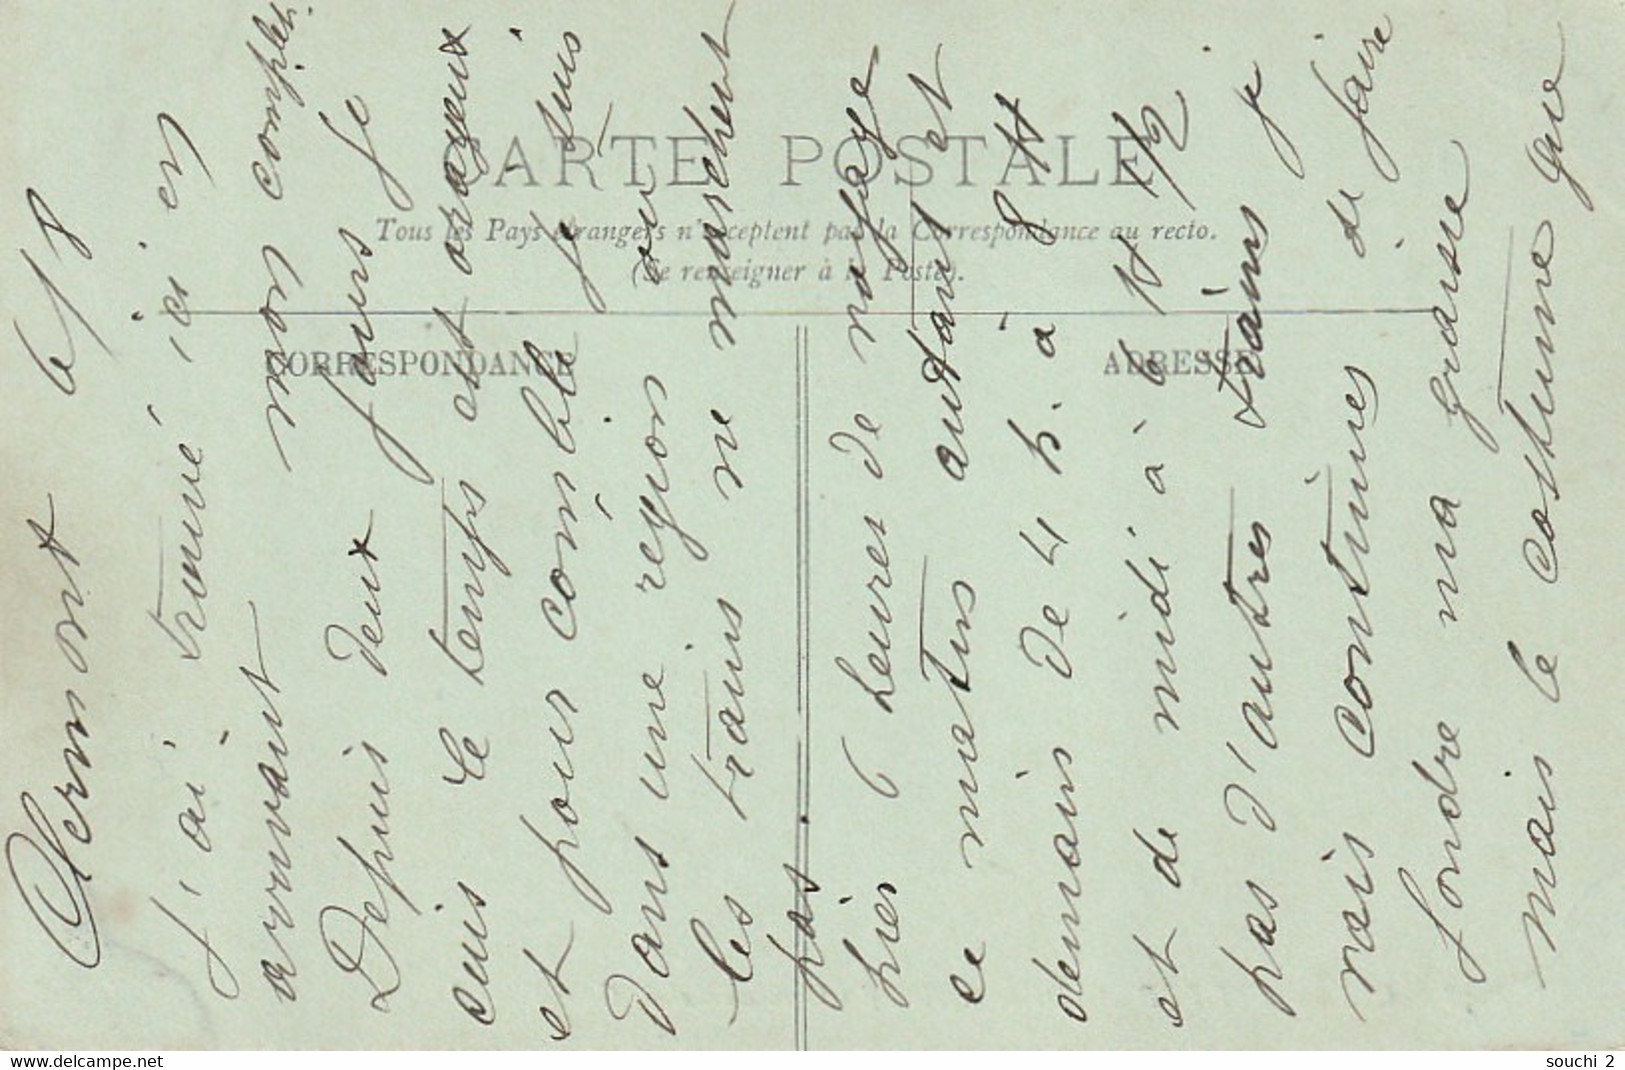 CARTE POSTALE
Tous les Pays étrangers n'acceptent pas la Correspondance au recto.
(Se renseigner à la Poste).
CORRESPONDANCE
ADRESSE
Clermont 6/8
J'ai trouvé ici en
arrivant mon complet.
Depuis deux jours je
cuis le temps est orageux
et pour comble je suis
dans une région où
les trains ne marchent
pas.
hier 6 heures de voyage
ce matin autant et
demain de 4 h. à 8 H
et de midi à 6 H 1/2
pas d'autres trains je
vais continuer de faire
fondre ma graisse
mais le costume que
www.delcampe.net
souchi 2